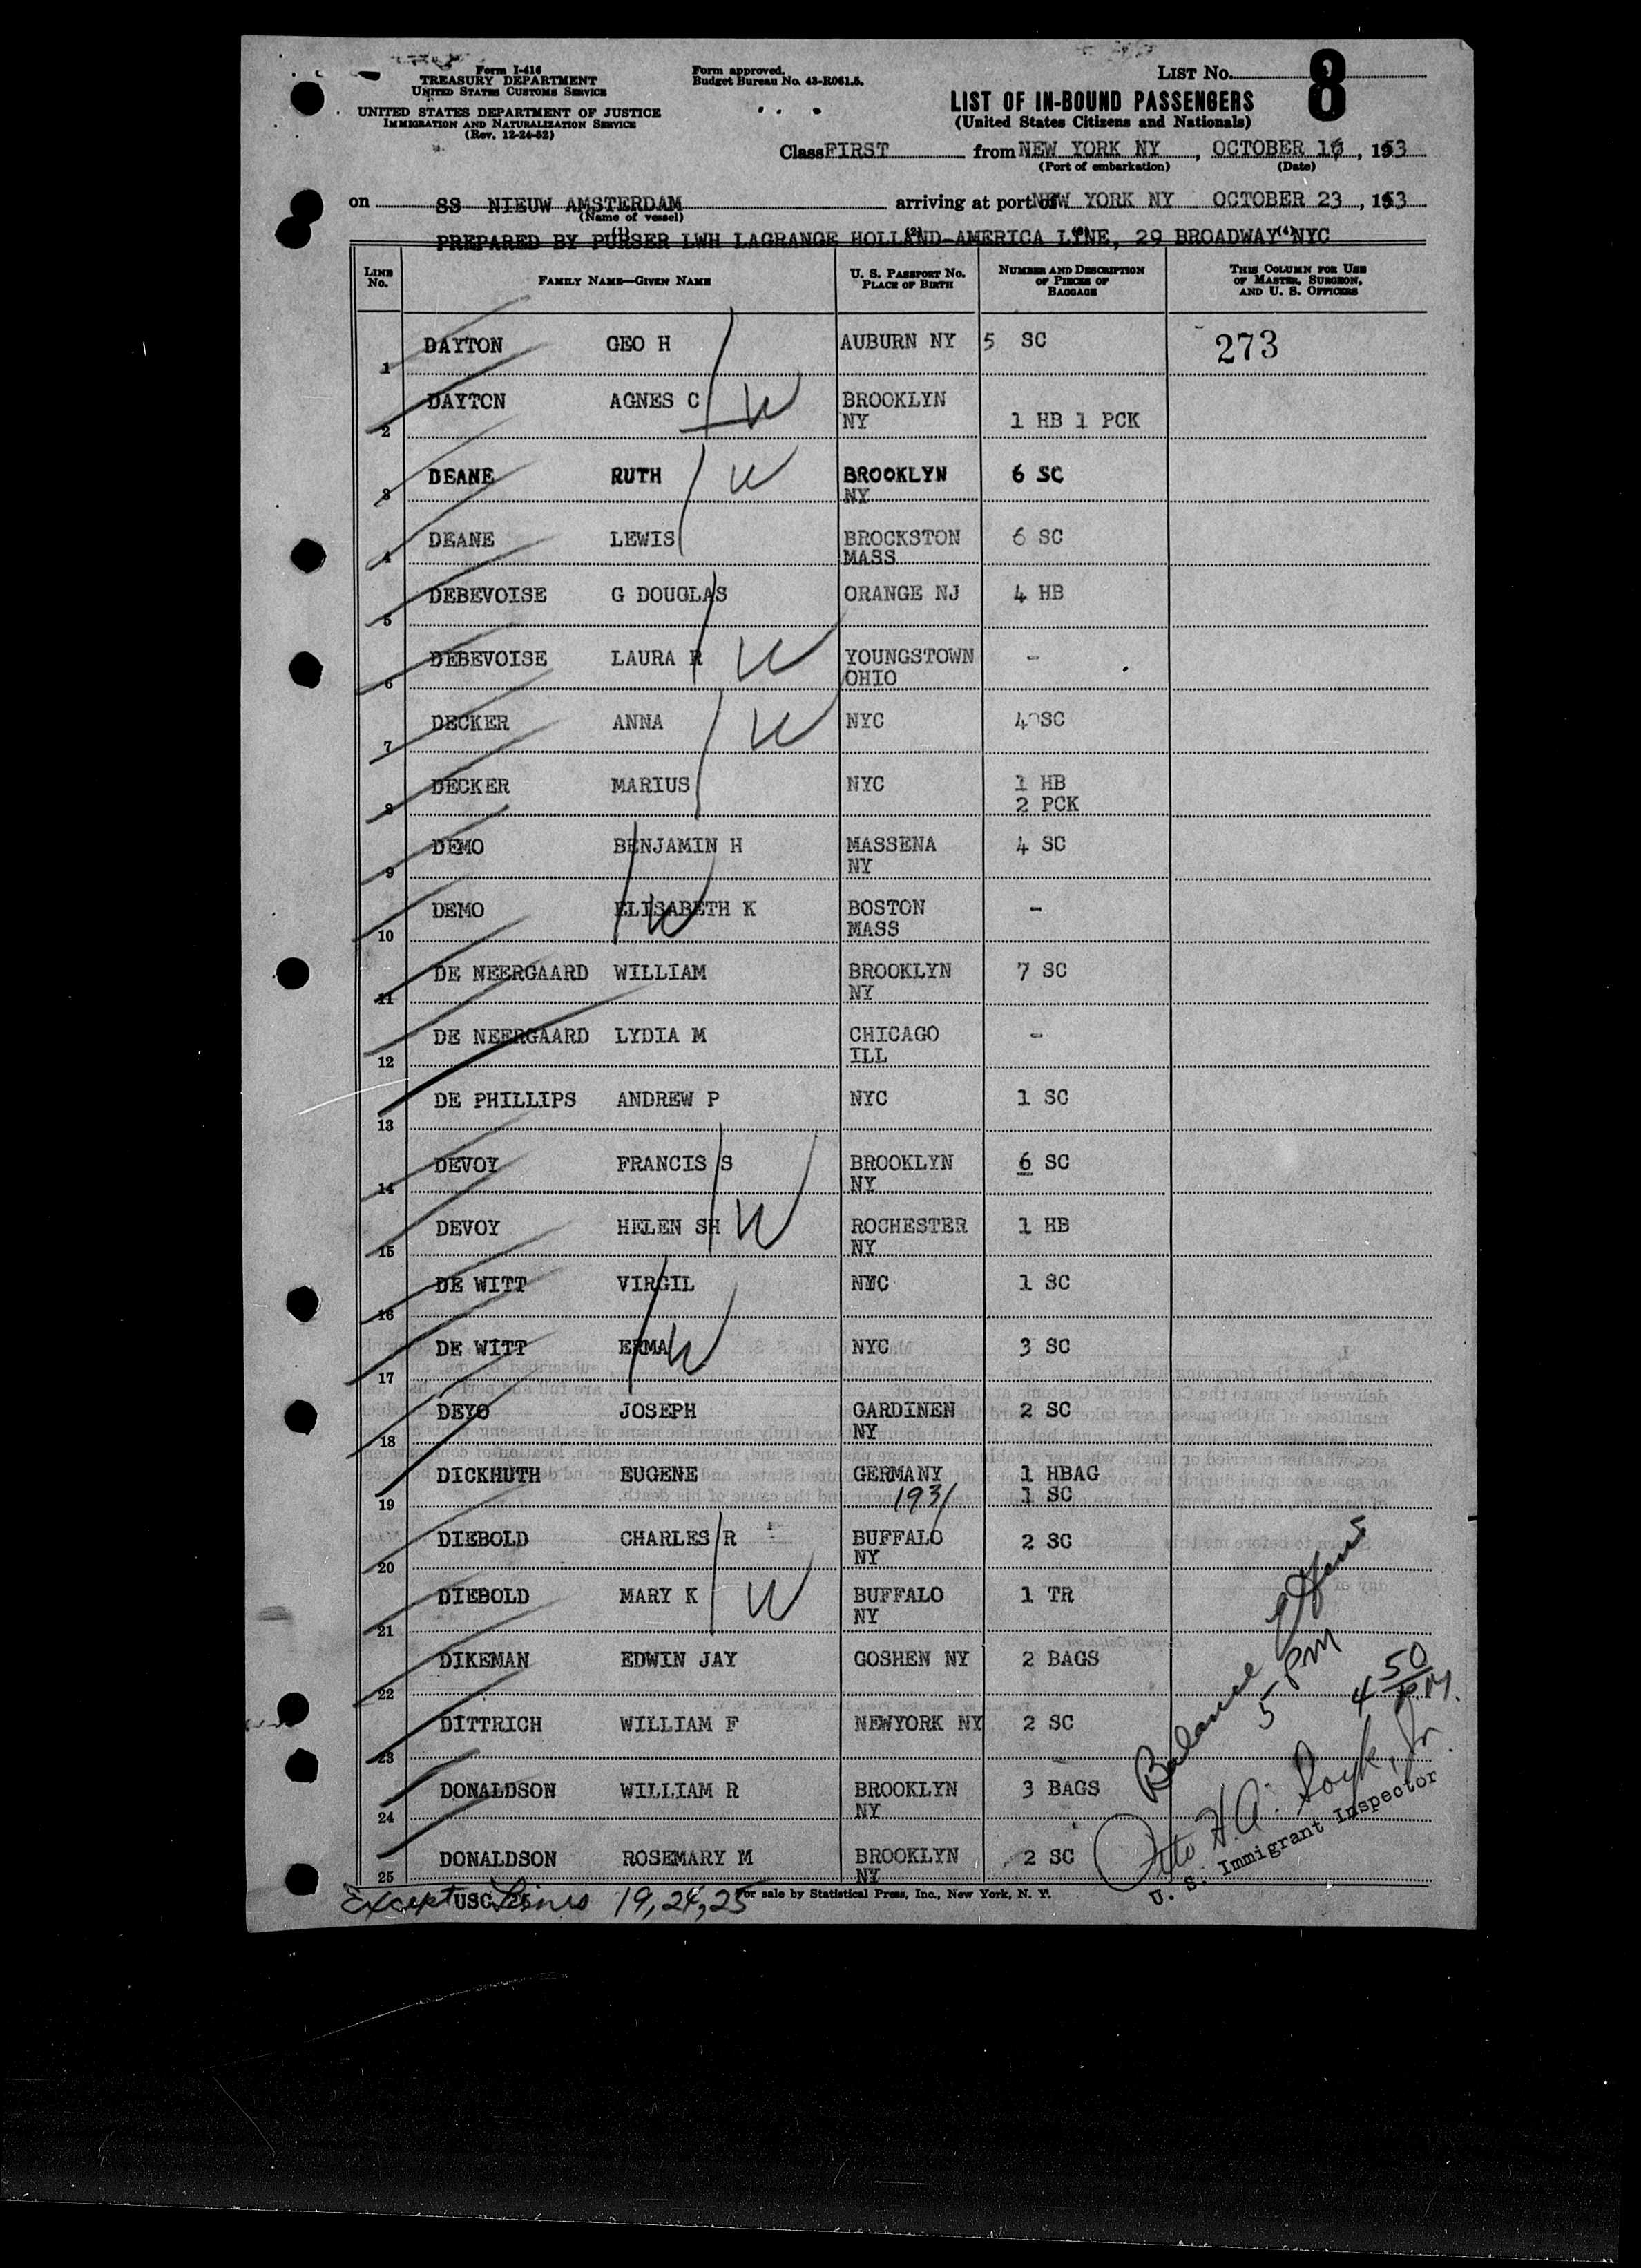 Form I-416
TREASURY DEPARTMENT
UNITED STATES CUSTOMS SERVICE
UNITED STATES DEPARTMENT OF JUSTICE
IMMIGRATION AND NATURALIZATION SERVICE
(Rev. 12-24-52)
Form approved.
Budget Bureau No. 43-R061.5.
LIST No. 8
LIST OF IN-BOUND PASSENGERS
(United States Citizens and Nationals)
Class FIRST from NEW YORK NY, OCTOBER 16, 1953
(Port of embarkation) (Date)
on SS NIEUW AMSTERDAM arriving at port of NEW YORK NY OCTOBER 23, 1953
(Name of vessel)
PREPARED BY PURSER LWH LAGRANGE HOLLAND-AMERICA LINE, 29 BROADWAY NYC
(1) (2) (3) (4)
LINE No. FAMILY NAME—GIVEN NAME U. S. PASSPORT NO. PLACE OF BIRTH NUMBER AND DESCRIPTION OF PIECES OF BAGGAGE THIS COLUMN FOR USE OF MASTER, SURGEON, AND U. S. OFFICERS
1 DAYTON GEO H AUBURN NY 5 SC 273
2 DAYTON AGNES C W BROOKLYN NY 1 HB 1 PCK
3 DEANE RUTH W BROOKLYN NY 6 SC
4 DEANE LEWIS BROCKSTON MASS 6 SC
5 DEBEVOISE G DOUGLAS ORANGE NJ 4 HB
6 DEBEVOISE LAURA R W YOUNGSTOWN OHIO -
7 DECKER ANNA W NYC 4 SC
8 DECKER MARIUS NYC 1 HB 2 PCK
9 DEMO BENJAMIN H MASSENA NY 4 SC
10 DEMO ELISABETH K W BOSTON MASS -
11 DE NEERGAARD WILLIAM BROOKLYN NY 7 SC
12 DE NEERGAARD LYDIA M CHICAGO ILL -
13 DE PHILLIPS ANDREW P NYC 1 SC
14 DEVOY FRANCIS S BROOKLYN NY 6 SC
15 DEVOY HELEN SH W ROCHESTER NY 1 HB
16 DE WITT VIRGIL NYC 1 SC
17 DE WITT ERMA W NYC 3 SC
18 DEYO JOSEPH GARDINEN NY 2 SC
19 DICKHUTH EUGENE GERMANY 1931 1 HBAG 1 SC
20 DIEBOLD CHARLES R BUFFALO NY 2 SC
21 DIEBOLD MARY K W BUFFALO NY 1 TR
22 DIKEMAN EDWIN JAY GOSHEN NY 2 BAGS
23 DITTRICH WILLIAM F NEWYORK NY 2 SC
24 DONALDSON WILLIAM R BROOKLYN NY 3 BAGS
25 DONALDSON ROSEMARY M BROOKLYN NY 2 SC
Balance
5 PM
4 50 P.M.
Otto H.A. Jr.
U. S. Immigrant Inspector
Except USC Lines 19, 24, 25
For sale by Statistical Press, Inc., New York, N. Y.